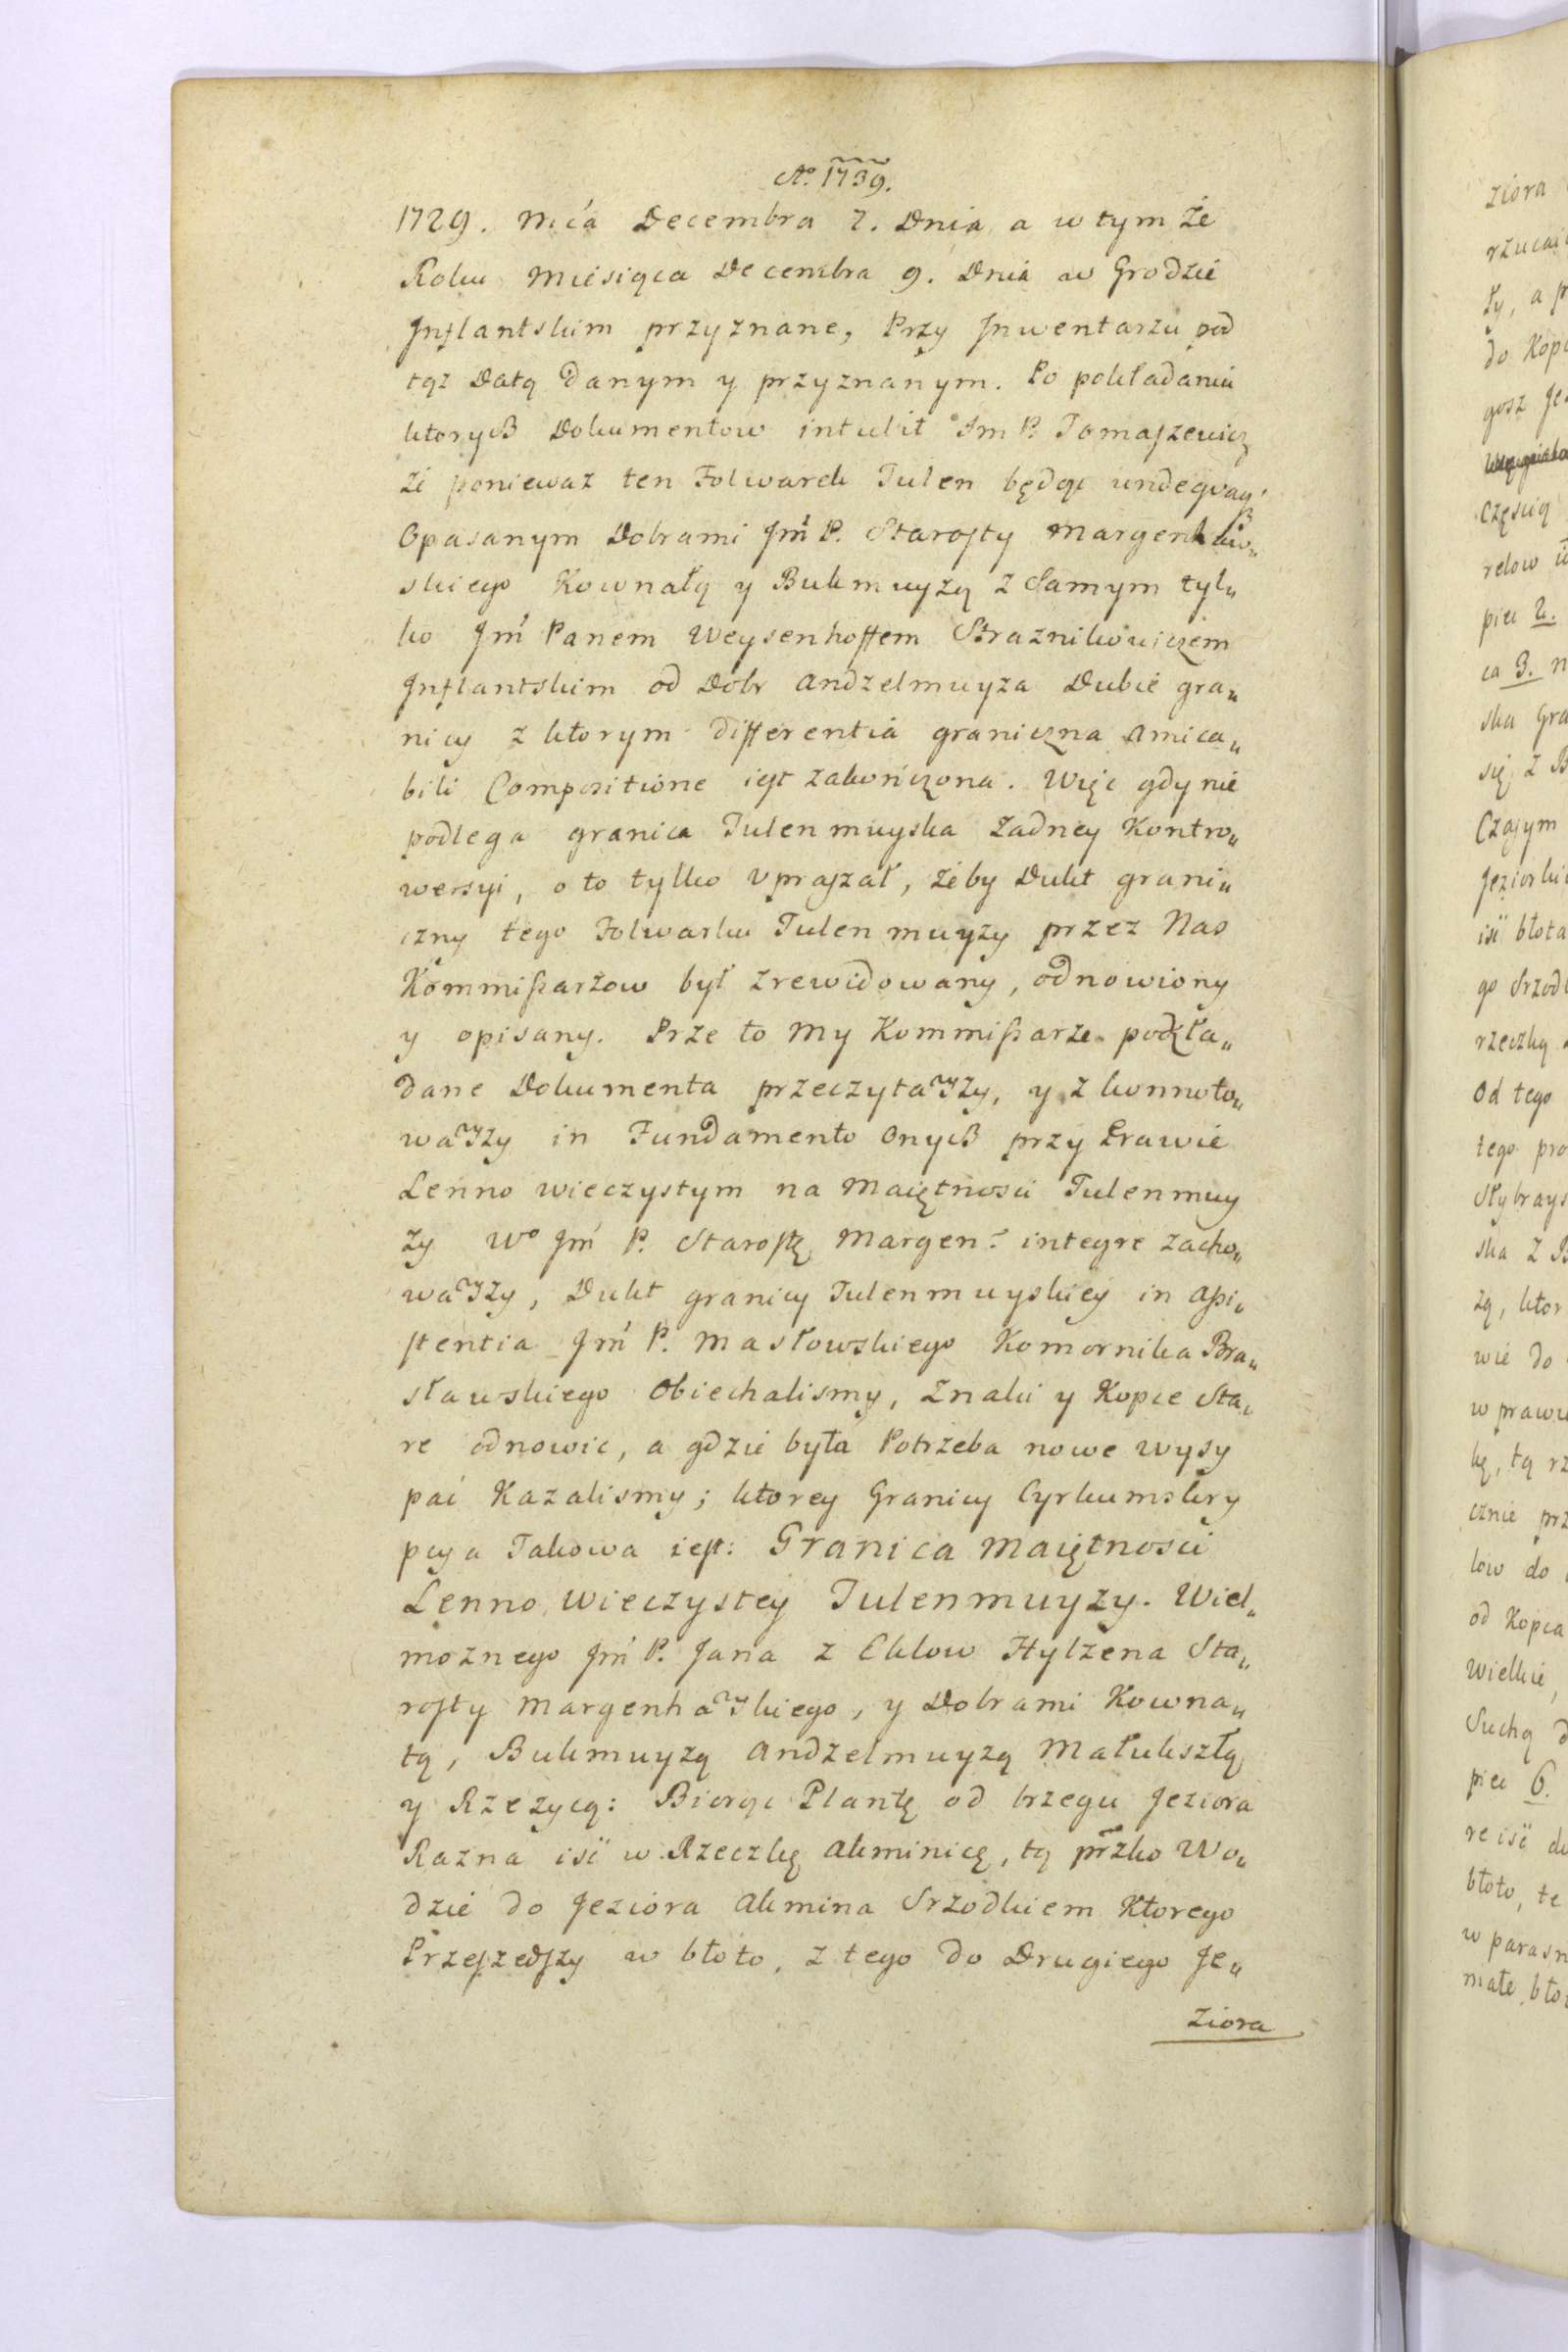 Aº. 1739.
1729. Mca Decembra 7. Dnia a w tym że
Roku Miesiąca Decembra 9. Dnia w Grodzie
Inflantskim przyznane, Przy Inwentarzu pod
tąż Datą danym y przyznanym. Po pokładaniu
ktorych Dokumentow intulit Im P. Tomaszewicz
że ponieważ ten Folwarek Tulen będąc undeqvaq'
Opasanym Dobrami Jm P. Starosty Margenhaw„
skiego Kownatą y Bukmuyżą z Samym tyl„
ko Jm Panem Weysenhoffem Straznikowiczem
Inflantskim od Dobr Andzelmuyza Dubie gra„
nicy z ktorym differentia graniczna amica„
bili Compositione iest zakończona. Więc gdy nie
podlega granica Tulenmuyska żadney Kontro„
wersyi, o to tylko upraszał, żeby Dukt grani„
czny tego Folwarku Tulenmuyzy przez Nas
Kommissarzow był zrewidowany, odnowiony
y opisany. Prze to My Kommissarze pokła„
dane Dokumenta przeczytawszy, y z konnoto„
wawszy in Fundamento onych przy Prawie
Lenno wieczystym na Maiętnosci Tulenmuy
zy Wº Jm P. Starostę Margen: integre zacho„
wawszy, Dukt granicy Tulenmuyskiey in assi„
stentia Jm P. Masłowskiego Komornika Bra„
sławskiego Obiechalismy, Znaki y Kopce Sta„
re odnowic, a gdzie była Potrzeba nowe wysy
pać Kazalismy; ktorey Granicy Cyrkumskry
pcya Takowa iest: Granica Maiętnosci
Lenno wieczystey Tulenmuyzy. Wiel„
moznego Jm P. Jana z Eklow Hylzena Sta„
rosty Margenhawskiego, y Dobrami Kowna„
tą, Bukmuyzą Andzelmuyzą Małuksztą
y Rzezycą: Biorąc Plantę od brzegu Jeziora
Razna iść w Rzeczkę Akminicę, tą przko Wo„
dzie do Jeziora Akmina Srzodkiem Ktorego
Przeszedszy w błoto, z tego do Drugiego Je„
ziora
ziora
do Kopc
Częscią
relow
piec 2.
ca 3. n
ska Gra
się z B
Czasym
Jeziorki
iść błota
go Srzod
rzeczką
Od tego
tego pro
ska z B
zą, ktor
wie do
w prawu
kę, tą rz
cznie prz
low do
od Kopca
Wielkie,
Suchą d
piec 6.
re iść do
błoto, te
w parasn
małe bło